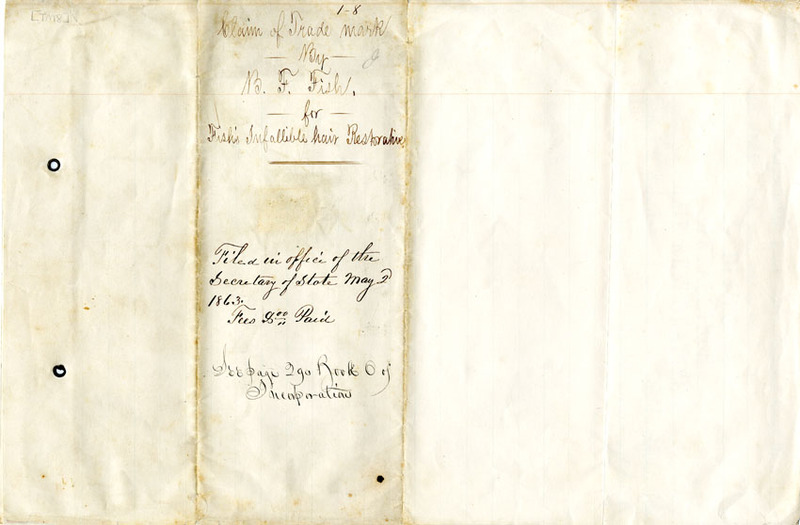 1-8
Claim of Trade mark
— By —
B. F. Fish.
— for —
Fish's Infallible hair Restorative
Filed in office of the
Secretary of State May 2
1863.
Fees Paid
See page 290 Book 6 of
Incorporation